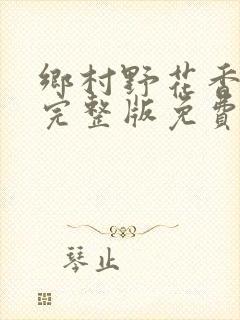 鄉村野花香
完整版免費
琴止